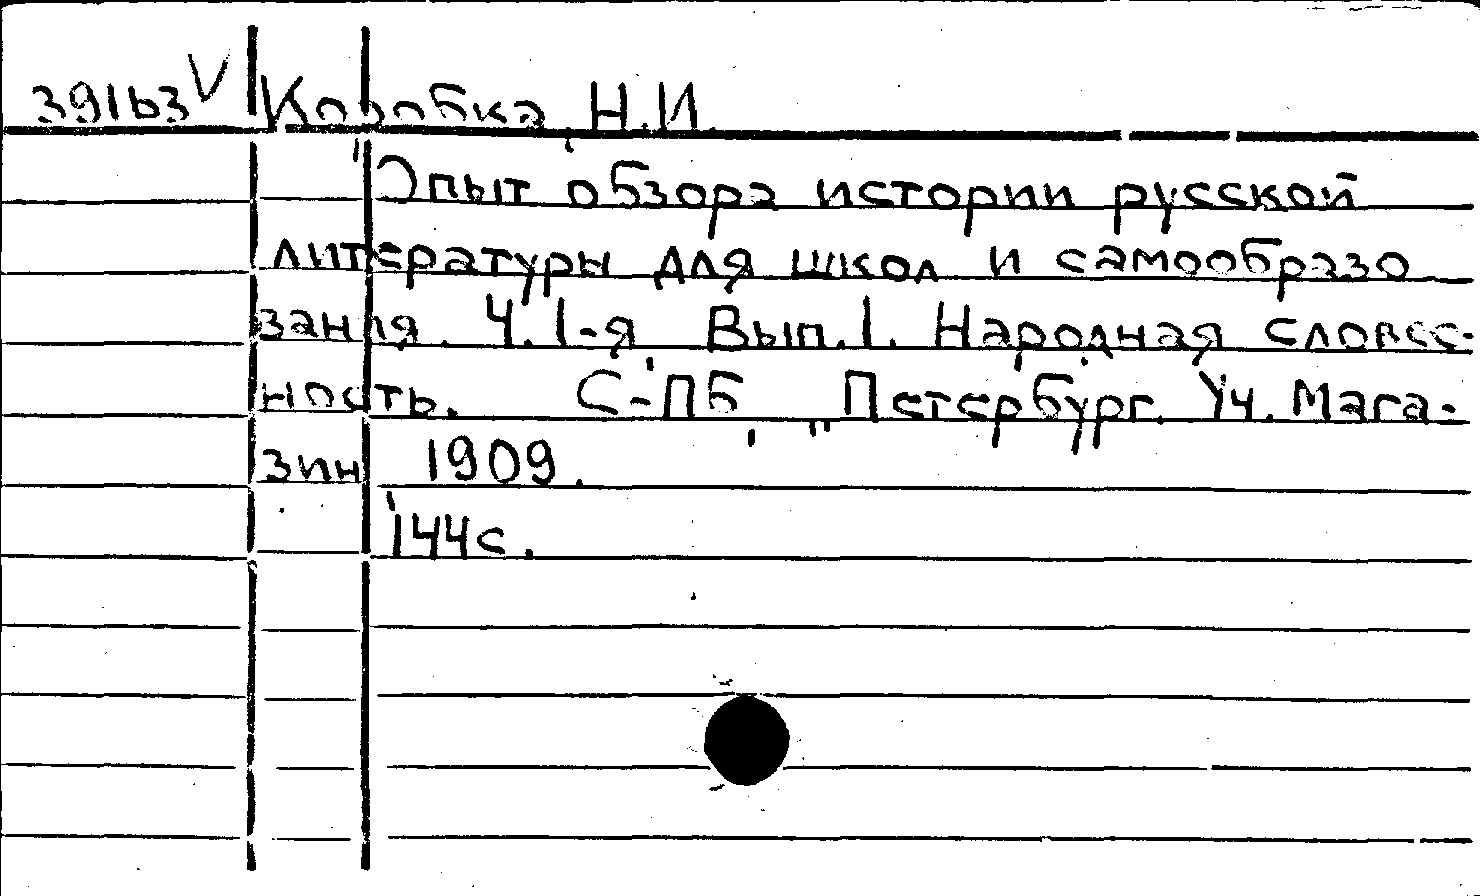 391b3 V Коробка, Н.И.
"Опыт обзора истории русской
литературы для школ и самообразо
вания. Ч. I-я. Вып. I. Народная словес-
ность. С-ПБ, "Петербург. Уч. Мага-
зин", 1909.
144с.